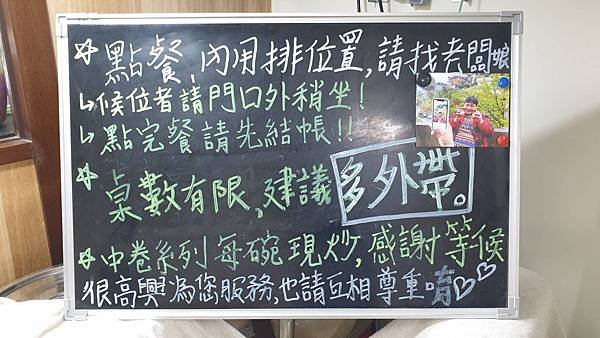 ☆點餐,內用排位置,請找老闆娘
↳候位者請門口外稍坐!
↳點完餐請先結帳!!
☆桌數有限,建議多外帶。
☆中卷系列每碗現炒,感謝等候
很高興為您服務,也請互相尊重唷♡♡